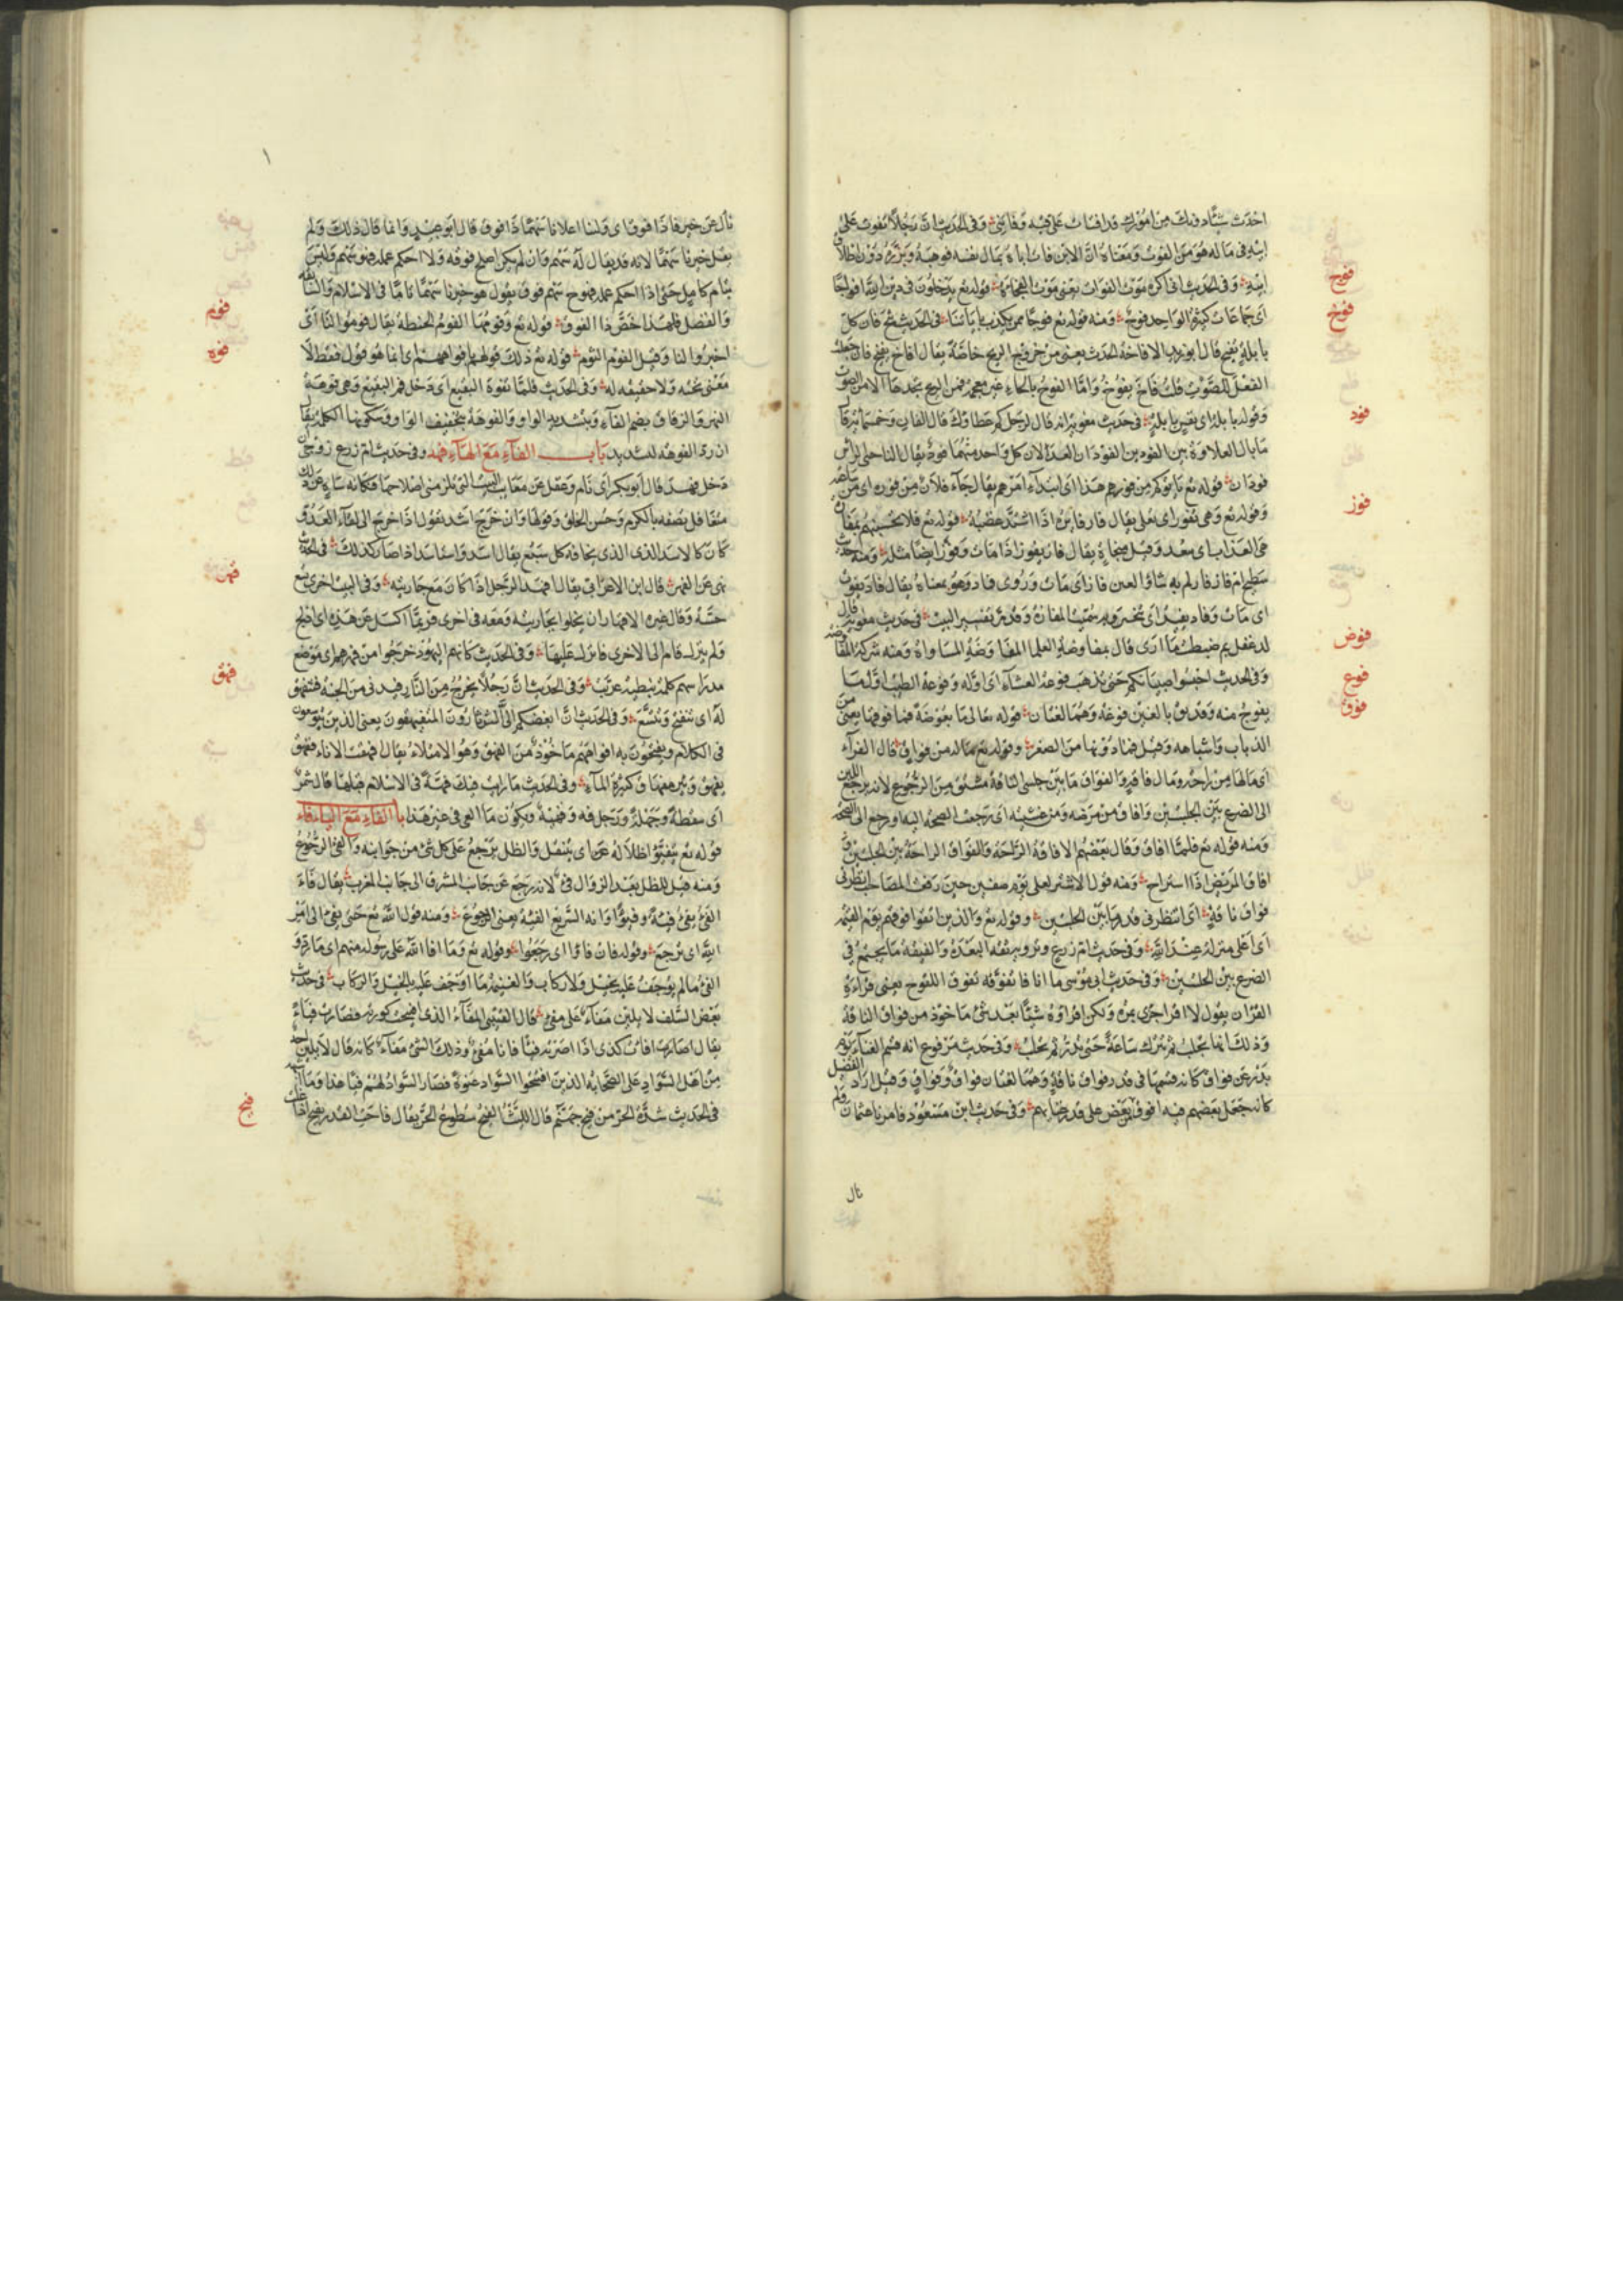 احدث شيئا دونك من امورك قد افتات عليه فيه وفاتنى وفى الحديث ان رجلا تفوت على
ابيه فى ماله هو من الفوت ومعناه ان الابن فات اباه بمال نفسه فوهبه
ابنه وفى الحديث اكره موت الفوات يعنى موت الفجاءة قوله تع يدخلون فى دين الله افواجا
فوج
اى جماعات كثيرة الواحد فوج ومنه قوله تع فوجا ممن يكذب باياتنا فى الحديث فان كل
فوخ
بايلة تفيخ قال ابو زيد الافاخة الحدث يعنى من خروج الريح خاصة يقال افاخ يفيخ فان جعلت
الفعل للصوت قلت فاخ يفوخ واما الفوح بالحاء غير معجمة فمن الريح تجدها لا من الصوت
وقوله بايلة اى نفس بايلة فى حديث معوية انه قال لرجل كم عطاؤك قال الفان وخمسمائة قال
فود
ما بال العلاوة بين الفودين الفودان العدلان كل واحد منهما فود يقال لناحيتى الراس
فودان قوله تع ياتوكم من فورهم هذا اى ابتداء امرهم يقال جاء فلان من فوره اى من ساعته
وقوله تع وهى تفور اى تغلى يقال فار فايره اذا اشتد غضبه قوله تع فلا تحسبنهم بمفازة
فوز
من العذاب اى ببعد وقيل منجاة يقال فاز يفوز اذا مات وفوز ايضا مثله ومنه حديث
سطيح ام فاز فازلم به شاو العنن فاز اى مات وروى فاد وهو بمعناه يقال فاد يفود
اى مات وفاد يفيد اى تبختر وبه سميت المفازة وقد مر تفسير البيت فى حديث معوية قال
لدغفل بم ضبطت ما ارى قال بمفاوضة العلما المفاوضة المساواة ومنه شركة المفاوضة
فوض
وفى الحديث احبسوا صبيانكم حتى تذهب فوعة العشاء اى اوله وفوعة الطيب اول ما
فوع
يفوح منه وقد يق بالغين فوغة وهما لغتان قوله تعالى ما بعوضة فما فوقها يعنى من
فوق
الذباب واشباهه وقيل فما دونها من الصغر وقوله تع ما لها من فواق قال الفراء
اى ما لها من راحة ولا افاقة والفواق ما بين حلبتى الناقة مشتق من الرجوع لانه يرجع اللبن
الى الضرع بين الحلبتين وافاق من مرضه ومن غشيته اى رجعت الصحة اليه او رجع الى الصحة
ومنه قوله تع فلما افاق وقال بعضهم الافاقة الراحة والفواق الراحة بين الحلبتين
افاق المريض اذا استراح ومنه قول الاشتر لعلى يوم صفين حين رفعت المصاحف انظرنى
فواق ناقة اى انتظرنى قدر ما بين الحلبتين وقوله تع والذين اتقوا فوقهم يوم القيمة
اى اعلى منزلة عند الله وفى حديث ام زرع وترويه فيقة اليعرة والفيقة ما يجتمع فى
الضرع بين الحلبتين وفى حديث ابى موسى اما انا فاتفوقه تفوق اللقوح يعنى قراءة
القران يقول لا اقرا جزئى بمرة ولكن اقراه شيئا بعد شئ ماخوذ من فواق الناقة
وذلك انها تحلب ثم تترك ساعة حتى تدر ثم تحلب وفى حديث مرفوع انه قسم الغنائم يوم
بدر عن فواق كانه قسمها فى قدر فواق ناقة وهما لغتان فواق وفواق وقيل اراد الفضل
كانه جعل بعضهم فيه افوق من بعض على قدر وفى حديث ابن مسعود فامرنا عثمان ولم
نال
نال عن خيرنا ذا فوق اى ولينا اعلانا سهما ذا فوق قال ابو عبيد وانما قال ذلك ولم
يقل خيرنا سهما لانه قد يقال له سهم وان لم يكن اصلح فوقه ولا احكم عمله فهو سهم وليس
بتام كامل حتى اذا احكم عمله فهو ح سهم ذو فوق يقول هو خيرنا سهما تاما فى الاسلام والسابقة
والفضل فلهذا خص ذا الفوق قوله تع وفومها الفوم الحنطة يقال فوموا لنا اى
فوم
اختبزوا لنا وقيل الفوم الثوم قوله تع ذلك قولهم بافواههم اى انما هو قول فقط لا
فوه
معنى تحته ولا حقيقة له وفى الحديث فلما تفوه البقيع اى دخل فم البقيع وهى فوهة
النهر والزقاق بضم الفاء وبتشديد الواو والفوهة بتخفيف الواو وسكونها الكلمة يقال
ان رد الفوهة لشديد باب الفاء مع الهاء فهد وفى حديث ام زرع زوجى ان
دخل فهد قال ابو بكر اى نام وغفل عن معايب البيت التى يلزمنى اصلاحها فكانه ساه عن ذلك
متغافل تصفه بالكرم وحسن الخلق وقولها وان خرج اسد تقول اذا خرج الى لقاء العدو
كان كالاسد الذى الذى يخافه كل سبع يقال اسد واستاسد اذا صار كذلك فى الحديث
نهى عن الفهر قال ابن الاعرابى يقال افهر الرجل اذا كان مع جاريته وفى البيت اخرى تسمع
فهر
حسه وقال غيره الافهار ان يخلو بجاريته ومعه فى اخرى فربما اكسل عن هذه اى افلج
ولم ينزل فقام الى الاخرى فانزل عليها وفى الحديث كانهم اليهود خرجوا من فهرهم اى موضع
مدراسهم كلمة نبطية عربت وفى الحديث ان رجلا يخرج من النار فيدنى من الجنة فتنفهق
فهق
له اى تنفتح وتتسع وفى الحديث ان ابغضكم الى الثرثارون المتفيهقون يعنى الذين يتوسعون
فى الكلام ويفتحون به افواههم ماخوذ من الفهق وهو الامتلاء يقال فهق الاناء فهق
يفهق وبئر مفهاق كثيرة الماء وفى الحديث ما رايت فيك فهة فى الاسلام قبلها قال شمر
اى سقطة وجهلة ورجل فه وفهيه ويكون ما العى فى غير هذا با الفاء مع الياء فاء
قوله تع يتفيؤا ظلاله عن اى يتنقل والظل يرجع على كل شئ من جوانبه والفئ الرجوع
ومنه قيل للظل بعد الزوال فئ لانه رجع عن جانب المشرق الى جانب المغرب يقال فاء
الفئ يفئ فيئة وفيوءا وانه السريع الفيئة يعنى الرجوع ومنه قول الله تع حتى تفئ الى امر
الله اى ترجع وقوله فان فاؤا اى رجعوا وقوله تع وما افا الله على رسوله منهم اى ما رده
الفئ ما لم يوجف عليه بخيل ولا ركاب والغنيمة ما اوجف عليه بالخيل والركاب فى حديث
بعض السلف لا يلين مفاء على مفئ قال القتيبى المفاء الذى افتتحت كورته فصارت فيئا
يقال افات كذى اذا صيرته فيئا فانا مفئ وذلك الشئ مفاء كانه قال لا يلين احد
من اهل السواد على الصحابة الذين افتتحوا السواد عنوة فصار السواد لهم فيئا هذا وما اشبهه
فى الحديث شدة الحر من فيح جهنم قال الليث الفيح سطوع الحر يقال فاحت القدر تفيح اذا غلت
فيح